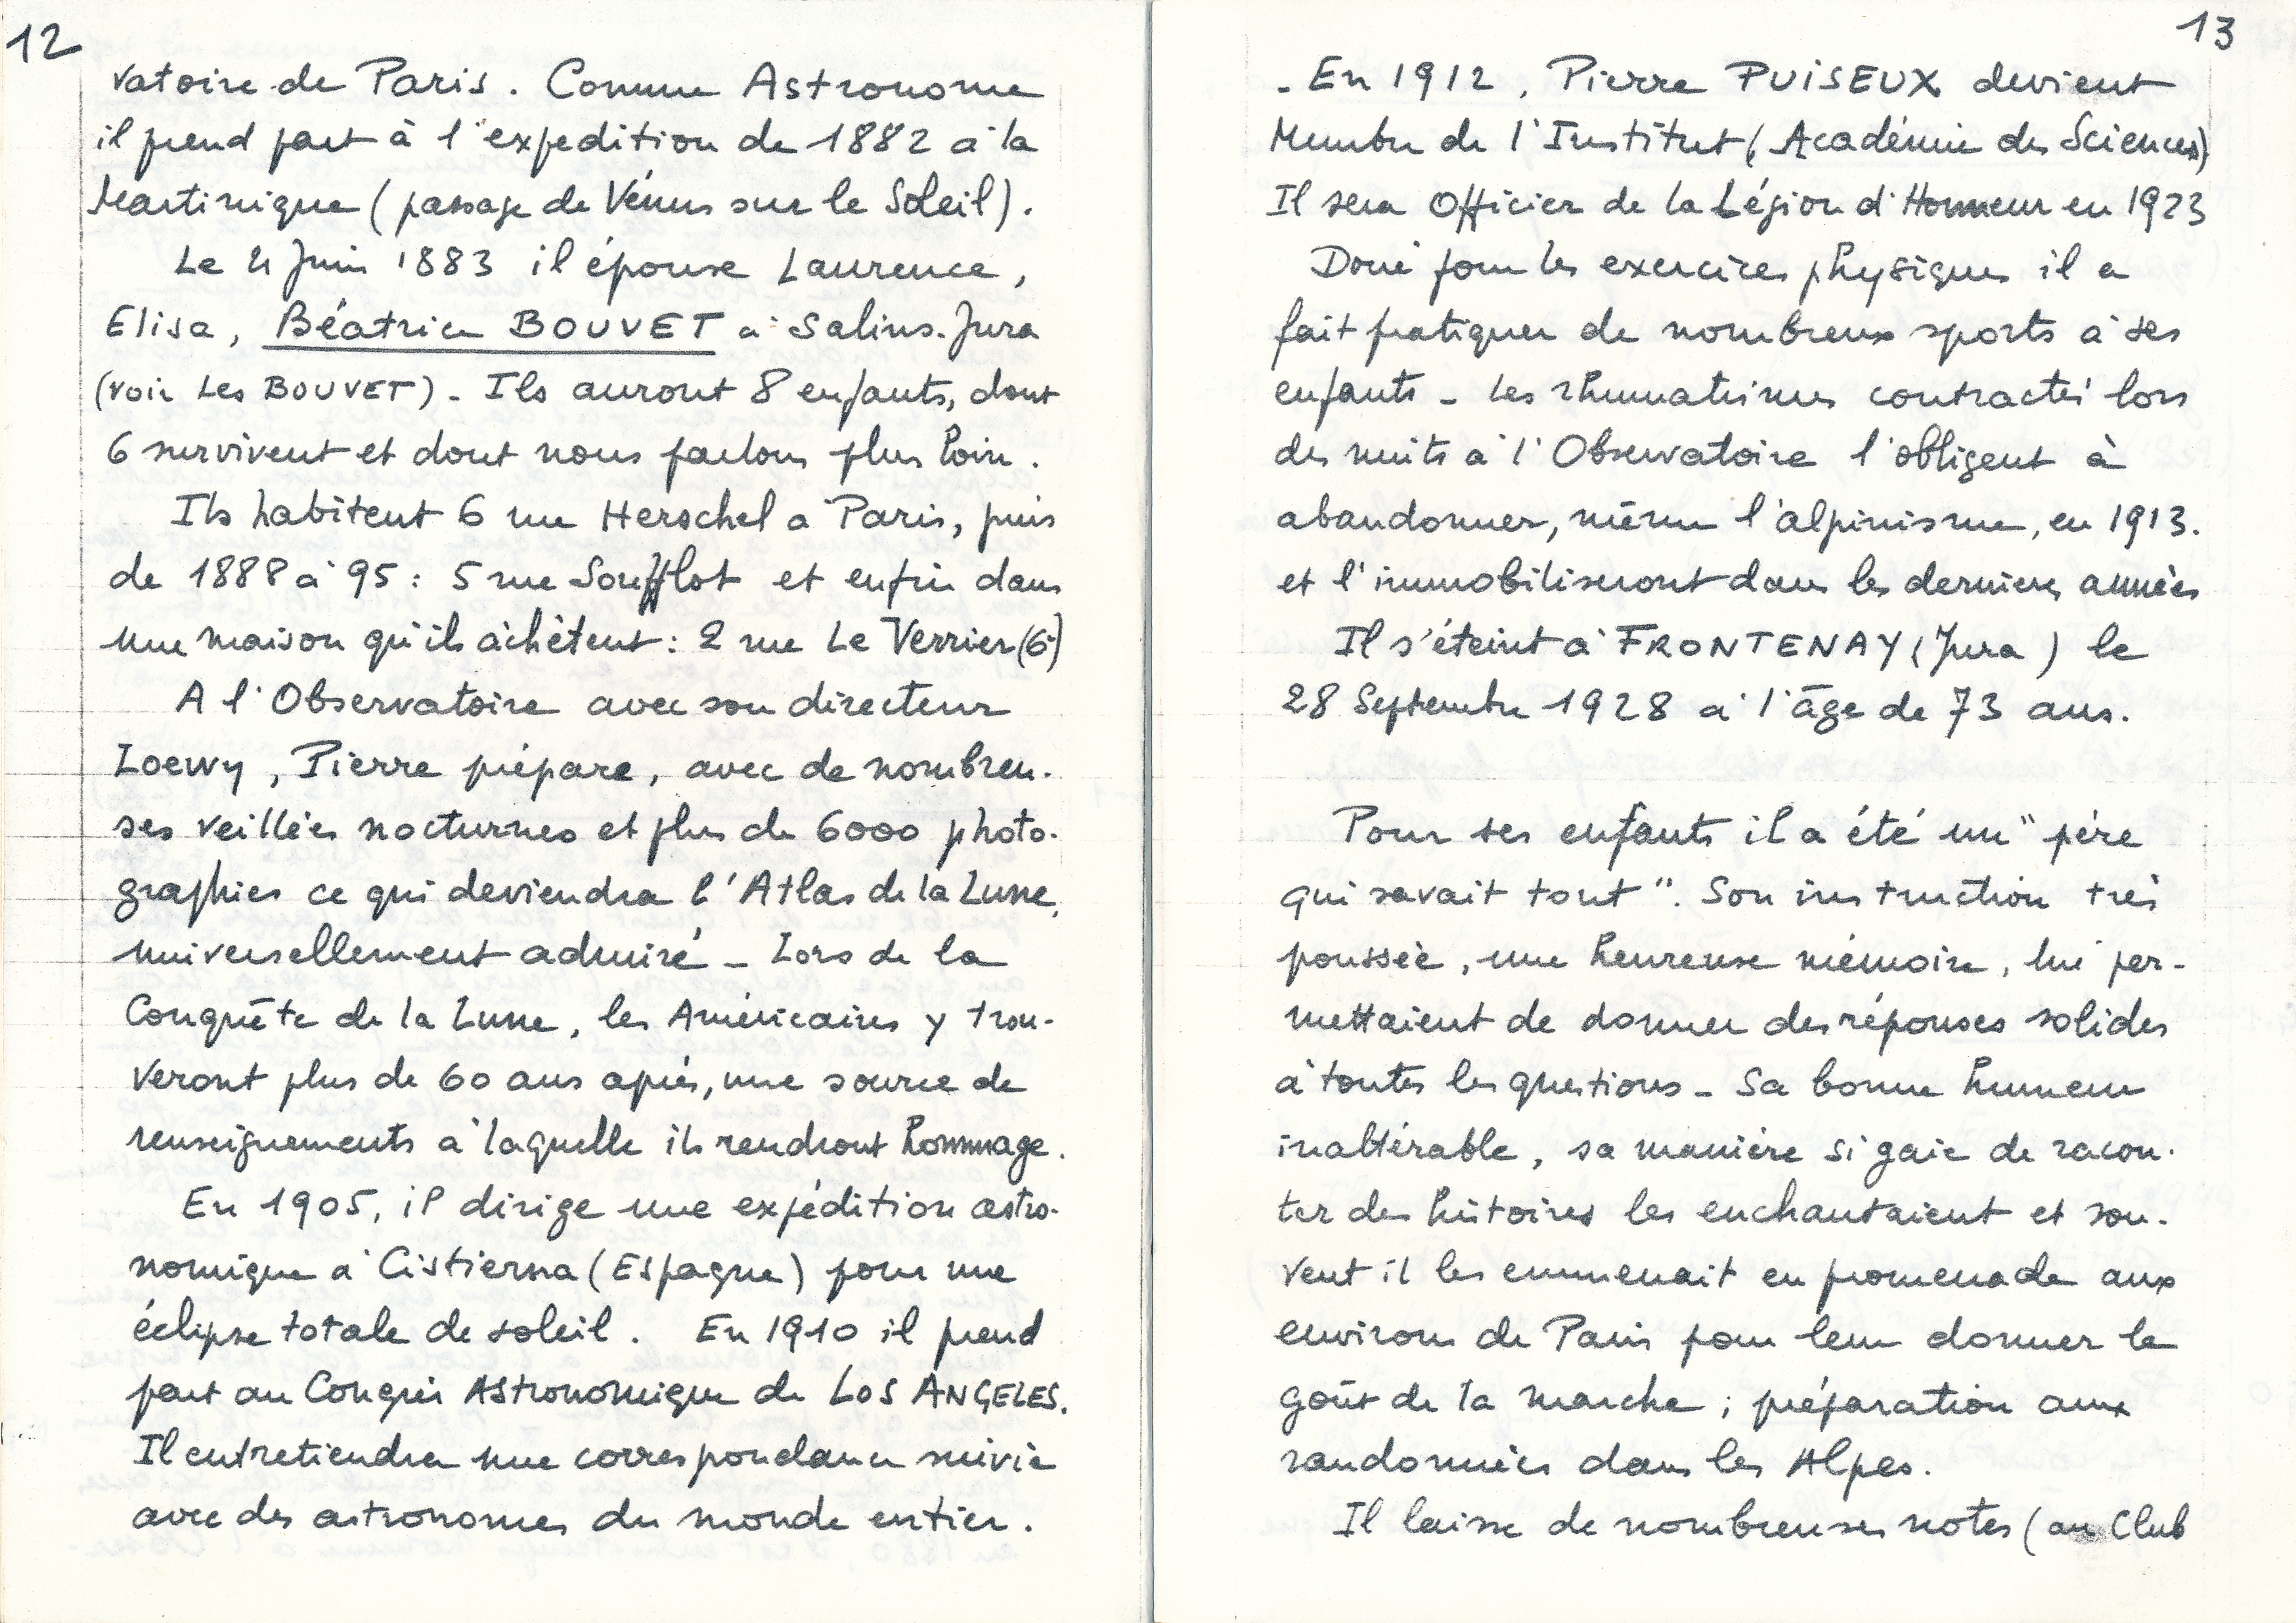 12
vatoire de Paris. Comme Astronome
il prend part à l'expedition de 1882 à la
Martinique (passage de Vénus sur le Soleil).
Le 21 Juin 1883 il épouse Laurence,
Elisa, Béatrice BOUVET à Salins-Jura
(voir Les BOUVET). Ils auront 8 enfants, dont
6 survivent et dont nous parlons plus loin.
Ils habitent 6 rue Herschel à Paris, puis
de 1888 à 95 : 5 rue Soufflot et enfin dans
une maison qu'ils achètent : 2 rue Le Verrier (6e)
A l'Observatoire avec son directeur
Loewy, Pierre prépare, avec de nombreu-
ses veillées nocturnes et plus de 6000 photo-
graphies ce qui deviendra l'Atlas de la Lune,
universellement admiré - Lors de la
Conquête de la Lune, les Américains y trou-
veront plus de 60 ans après, une source de
renseignements à laquelle ils rendront hommage.
En 1905, il dirige une expédition astro-
nomique à Cistierna (Espagne) pour une
éclipse totale de soleil. En 1910 il prend
part au Congrès Astronomique de LOS ANGELES.
Il entretiendra une correspondance suivie
avec des astronomes du monde entier.
13
- En 1912, Pierre PUISEUX devient
Membre de l'Institut (Académie des Sciences)
Il sera Officier de la Légion d'Honneur en 1923
Doué pour les exercices physiques il a
fait pratiquer de nombreux sports à ses
enfants - Les rhumatismes contractés lors
des nuits à l'Observatoire l'obligent à
abandonner, même l'alpinisme, en 1913.
et l'immobiliseront dans les dernières années
Il s'éteint à FRONTENAY (Jura) le
28 Septembre 1928 à l'âge de 73 ans.
Pour ses enfants il a été un "père
qui savait tout". Son instruction très
poussée, une heureuse mémoire, lui per-
mettaient de donner des réponses solides
à toutes les questions - Sa bonne humeur
inaltérable, sa manière si gaie de racon-
ter des histoires les enchantaient et sou-
vent il les emmenait en promenade aux
environs de Paris pour leur donner le
goût de la marche ; préparation aux
randonnées dans les Alpes.
Il laisse de nombreuses notes (au Club